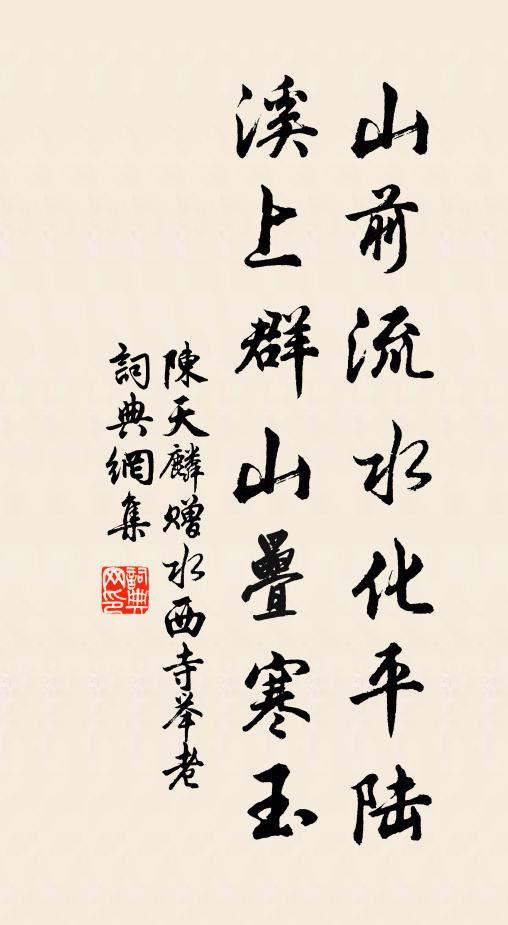 山前流水化平陆
溪上群山疊寒玉
陳天麟赠水西寺举老
詞典網集
詞典網印